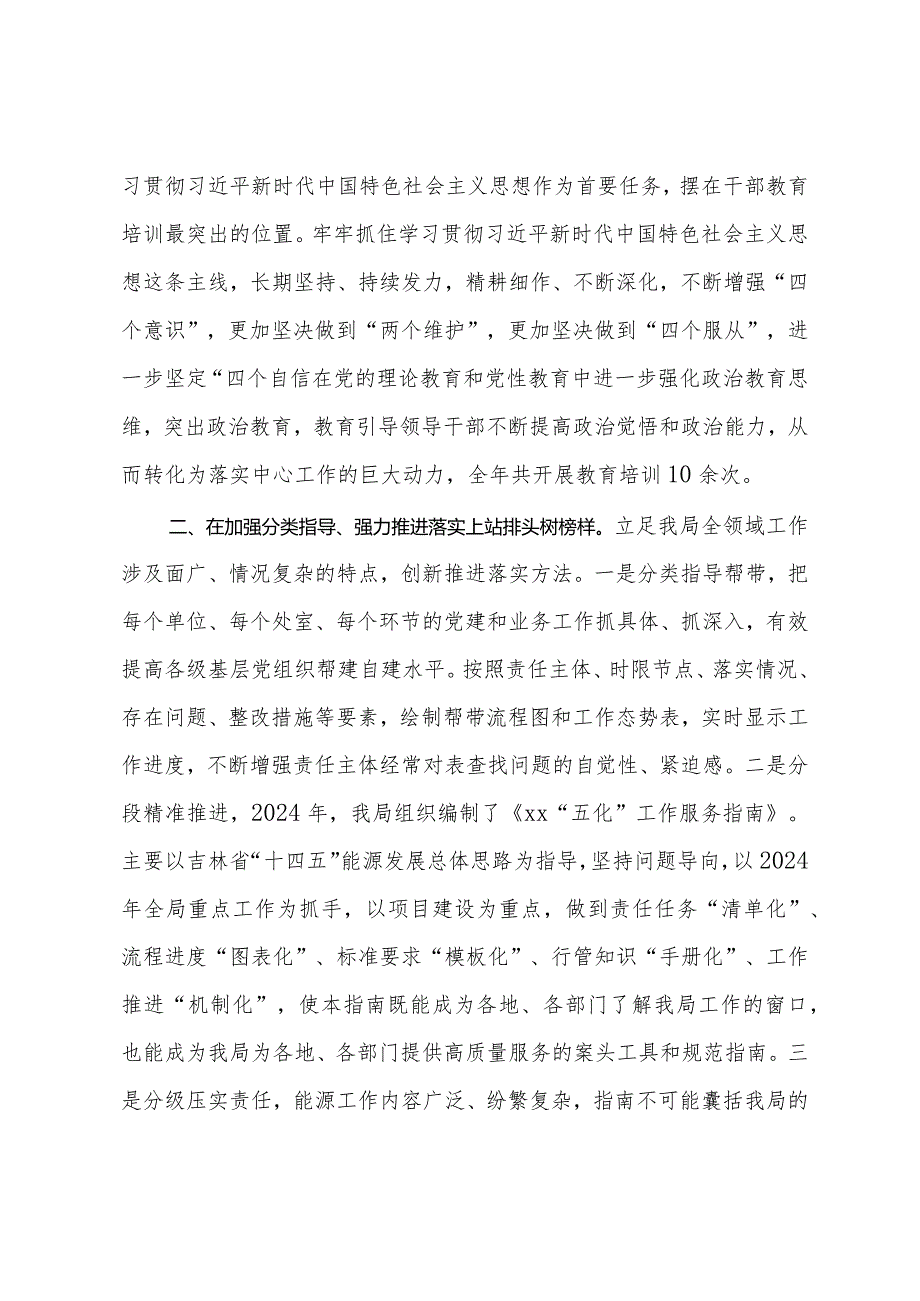 习贯彻习近平新时代中国特色社会主义思想作为首要任务，摆在干部教育
培训最突出的位置。牢牢抓住学习贯彻习近平新时代中国特色社会主义思
想这条主线，长期坚持、持续发力，精耕细作、不断深化，不断增强“四
个意识”，更加坚决做到“两个维护”，更加坚决做到“四个服从”，进
一步坚定“四个自信在党的理论教育和党性教育中进一步强化政治教育思
维，突出政治教育，教育引导领导干部不断提高政治觉悟和政治能力，从
而转化为落实中心工作的巨大动力，全年共开展教育培训10余次。
二、在加强分类指导、强力推进落实上站排头树榜样。立足我局全领域工作
涉及面广、情况复杂的特点，创新推进落实方法。一是分类指导帮带，把
每个单位、每个处室、每个环节的党建和业务工作抓具体、抓深入，有效
提高各级基层党组织帮建自建水平。按照责任主体、时限节点、落实情况、
存在问题、整改措施等要素，绘制帮带流程图和工作态势表，实时显示工
作进度，不断增强责任主体经常对表查找问题的自觉性、紧迫感。二是分
段精准推进，2024年，我局组织编制了《xx“五化”工作服务指南》。
主要以吉林省“十四五”能源发展总体思路为指导，坚持问题导向，以2024
年全局重点工作为抓手，以项目建设为重点，做到责任任务“清单化”、
流程进度“图表化”、标准要求“模板化”、行管知识“手册化”、工作
推进“机制化”，使本指南既能成为各地、各部门了解我局工作的窗口，
也能成为我局为各地、各部门提供高质量服务的案头工具和规范指南。三
是分级压实责任，能源工作内容广泛、纷繁复杂，指南不可能囊括我局的